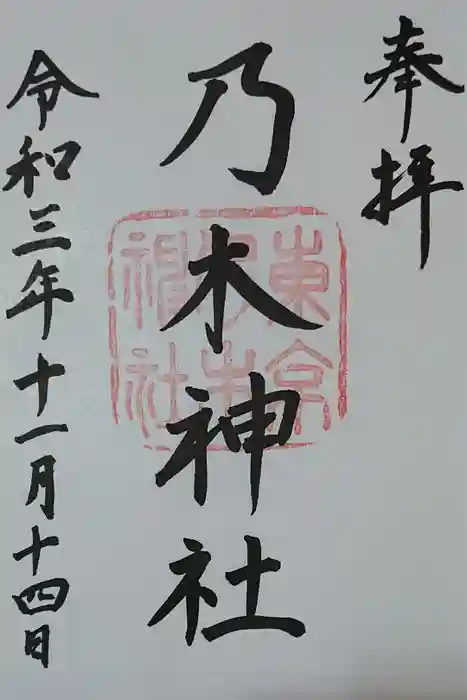 奉拝
乃木神社
東京
乃木
神社
令和三年十一月十四日